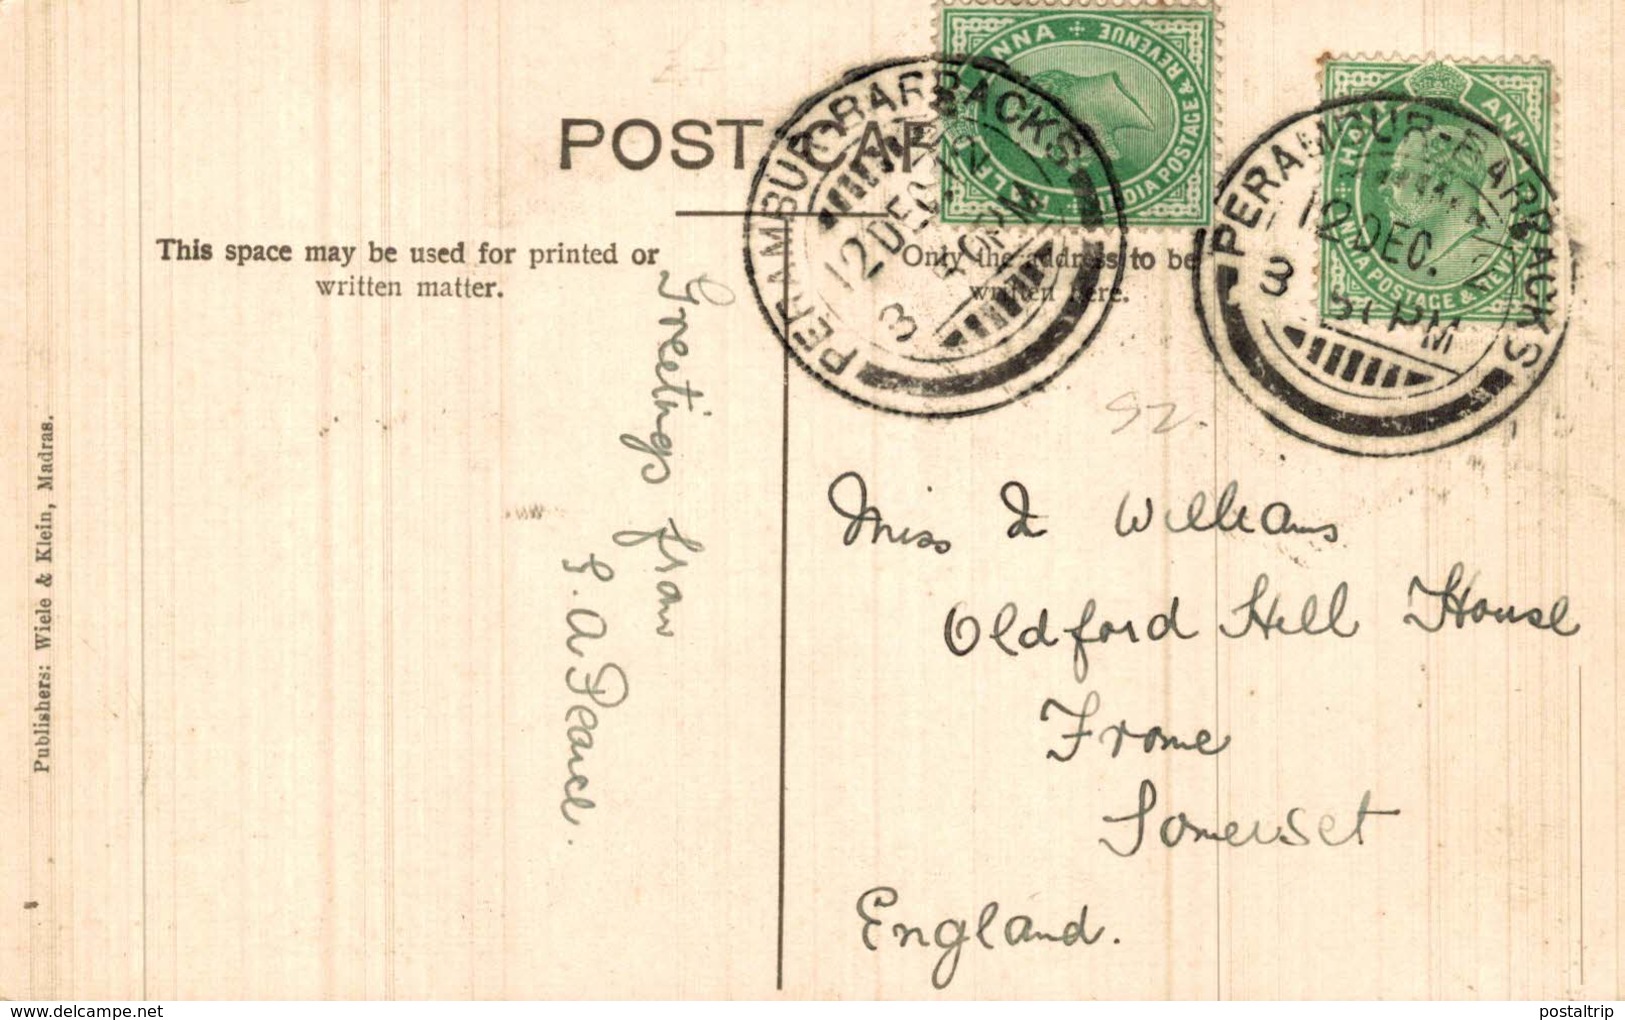 POST CAR
This space may be used for printed or
written matter.
Only the address to be
written here.
Publishers: Wiele & Klein, Madras.
Greetings from
A. Pearce.
Miss Williams
Oldford Hill House
Frome
Somerset
England.
PERAMBUR-BARRACKS
12 DEC.
PM
ANNA
INDIA POSTAGE & REVENUE
PERAMBUR-BARRACKS
12 DEC.
PM
HALF ANNA
INDIA POSTAGE & REVENUE
www.delcampe.net
postaltrip